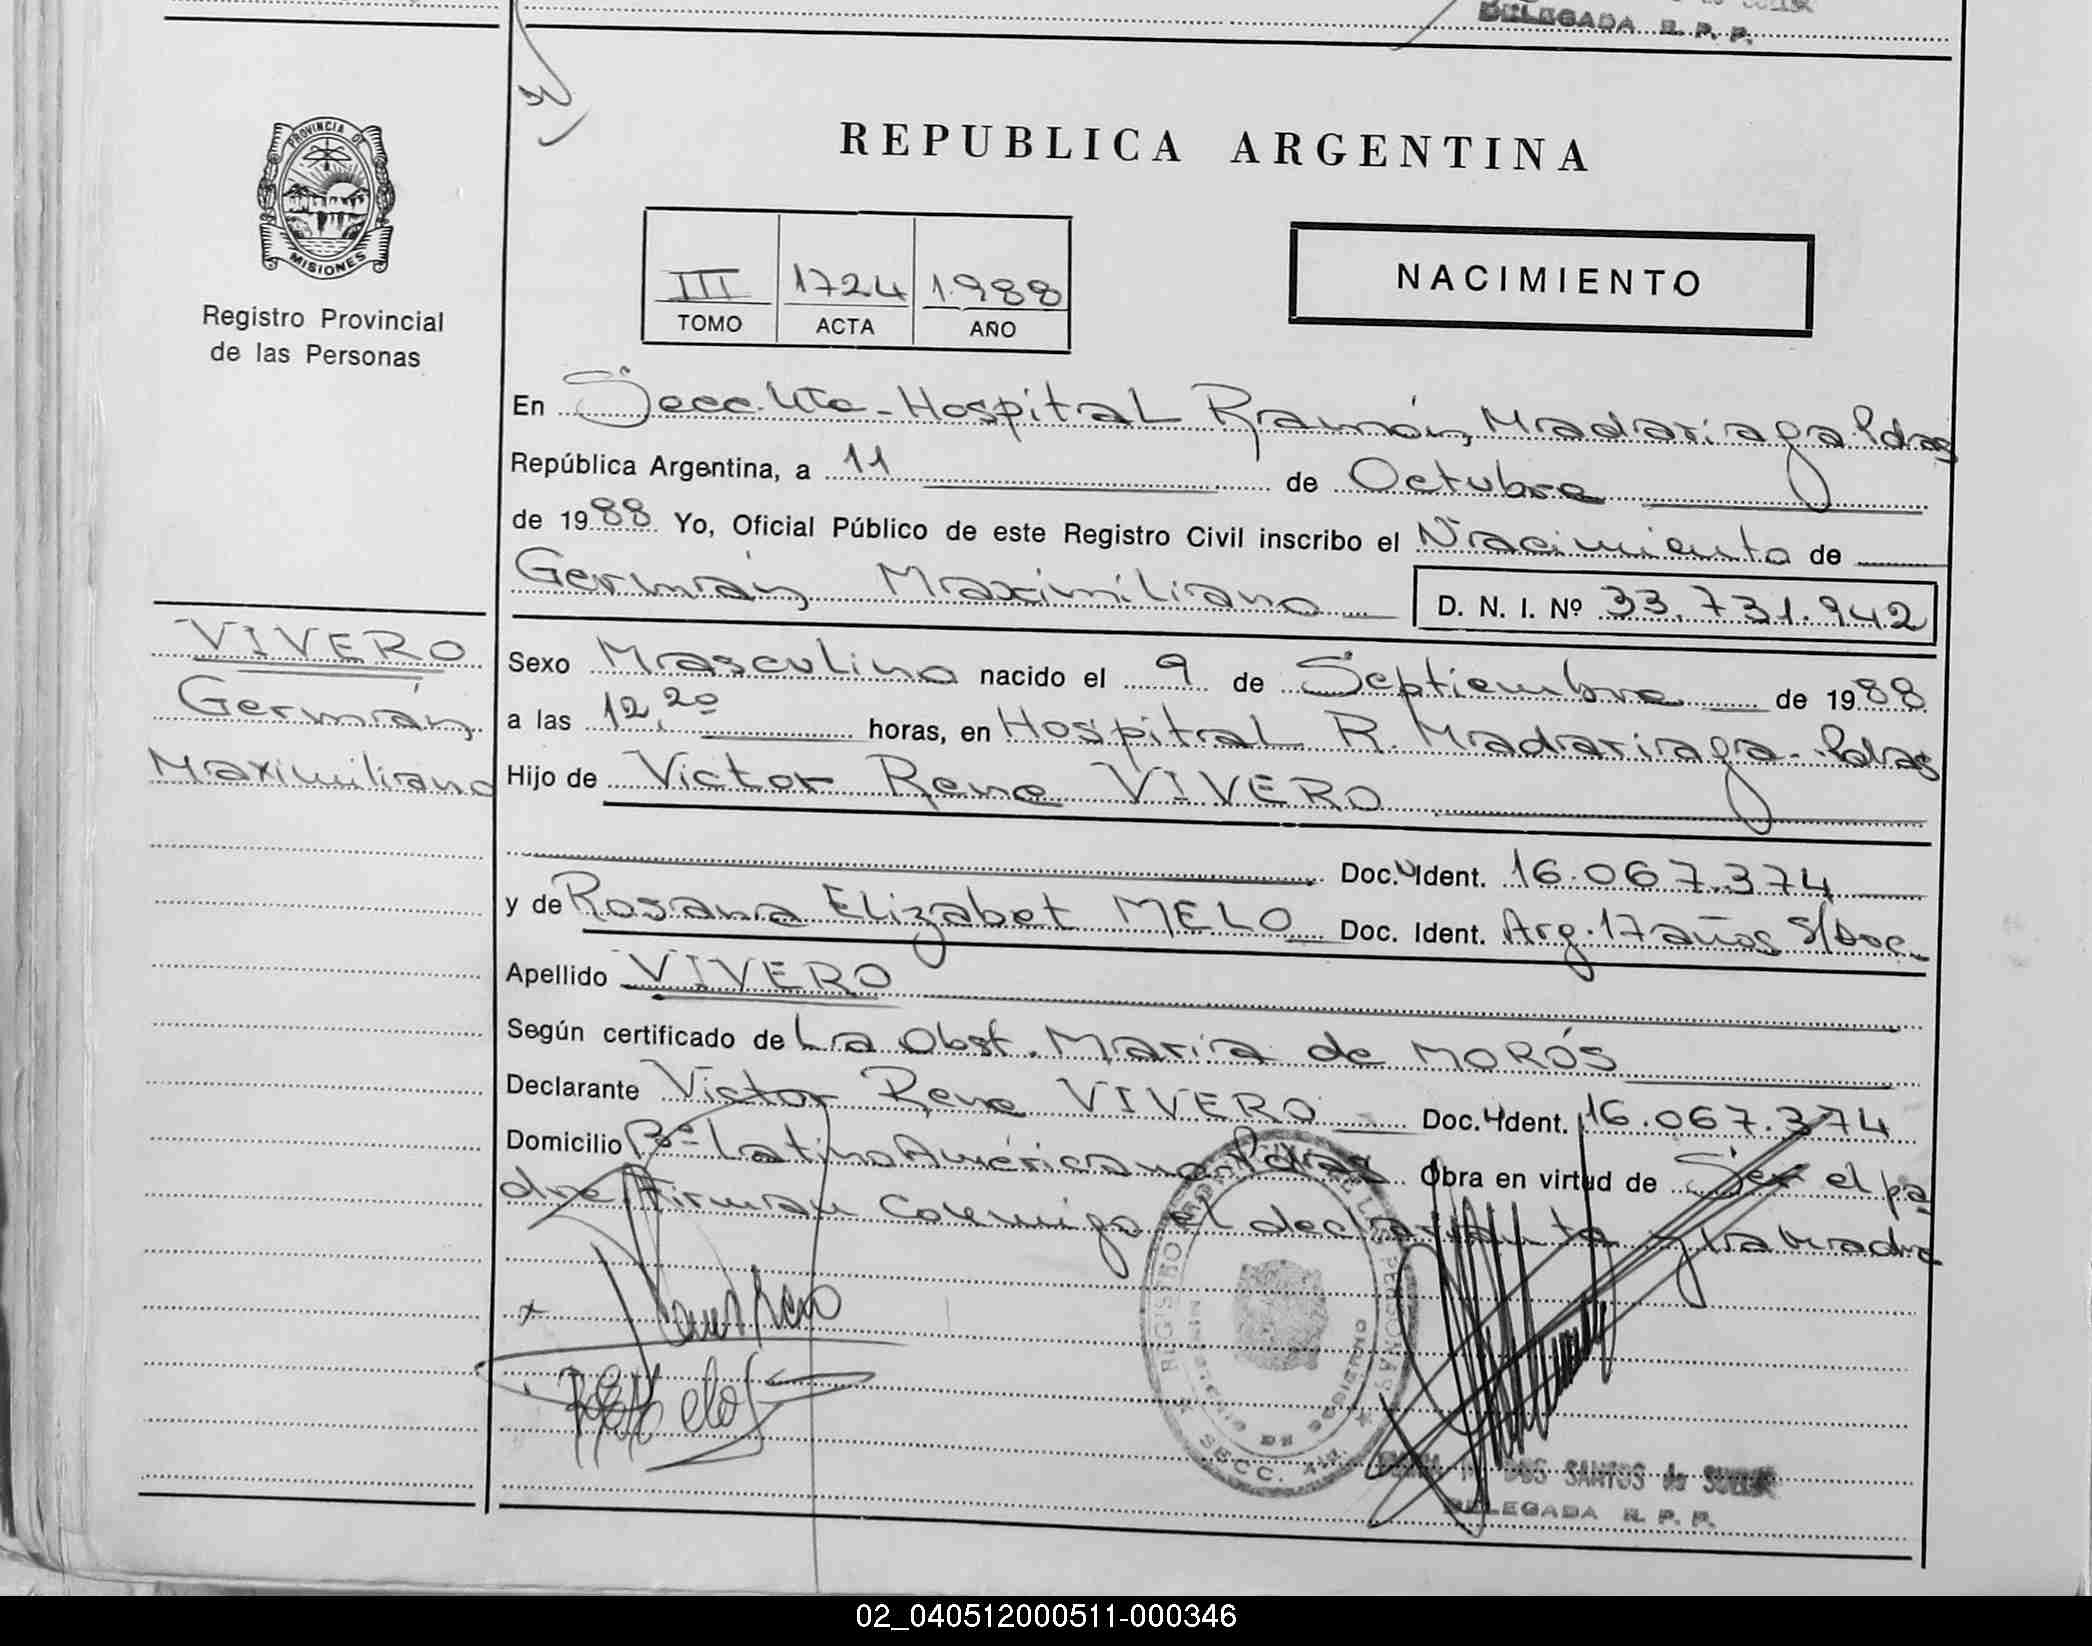 DELEGADA R. P. P.
PROVINCIA DE
MISIONES
Registro Provincial
de las Personas
REPUBLICA ARGENTINA
III 1724 1.988
TOMO ACTA AÑO
NACIMIENTO
En Secc. Hospital Ramón Madariaga Pdas
República Argentina, a 11 de Octubre
de 1988 Yo, Oficial Público de este Registro Civil inscribo el Nacimiento de
Germán Maximiliano D. N. I. Nº 33.731.942
VIVERO
Germán
Maximiliano
Sexo Masculino nacido el 9 de Septiembre de 1988
a las 12,20 horas, en Hospital R. Madariaga - Pdas
Hijo de Victor Rene VIVERO
Doc. Ident. 16.067.374
y de Rosana Elizabet MELO Doc. Ident. Arg. 17 años S/Doc.
Apellido VIVERO
Según certificado de La Obst. María de MORÓS
Declarante Victor Rene VIVERO Doc. Ident. 16.067.374
Domicilio Bº Latino Américano Pdas Obra en virtud de Ser el pa
dre. Firman Conmigo el declarante y la madre
REGISTRO DE LAS PERSONAS
MINISTERIO DE GOBIERNO
SECC.
DOS SANTOS de
DELEGADA R. P. P.
02_040512000511-000346